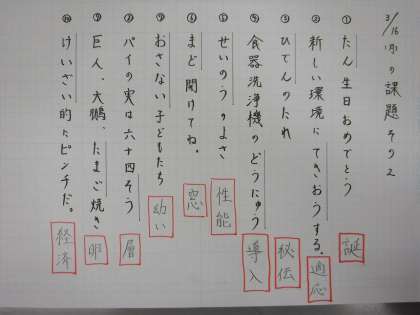 3/16(月)の課題その2
① たん生日おめでとう 誕
② 新しい環境にてきおうする。 適応
③ ひでんのたれ 秘伝
④ 食器洗浄機のどうにゅう 導入
⑤ せいのうのよさ 性能
⑥ まど開けてね。 窓
⑦ おさない子どもたち 幼い
⑧ パイの実は六十四そう 層
⑨ 巨人、大鵬、たまご焼き 卵
⑩ けいざい的にピンチだ。 経済